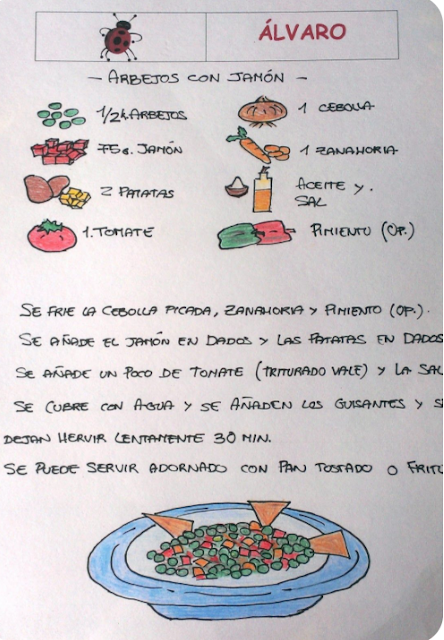 ÁLVARO
- ARBEJOS CON JAMÓN -
1/2k. ARBEJOS
1 CEBOLLA
75 g. JAMÓN
1 ZANAHORIA
2 PATATAS
ACEITE Y.
SAL
1. TOMATE
PIMIENTO (OP.)
SE FRIE LA CEBOLLA PICADA, ZANAHORIA Y PIMIENTO (OP.).
SE AÑADE EL JAMÓN EN DADOS Y LAS PATATAS EN DADOS
SE AÑADE UN POCO DE TOMATE (TRITURADO VALE) Y LA SAL
SE CUBRE CON AGUA Y SE AÑADEN LOS GUISANTES Y S
DEJAN HERVIR LENTAMENTE 30 MIN.
SE PUEDE SERVIR ADORNADO CON PAN TOSTADO O FRITO